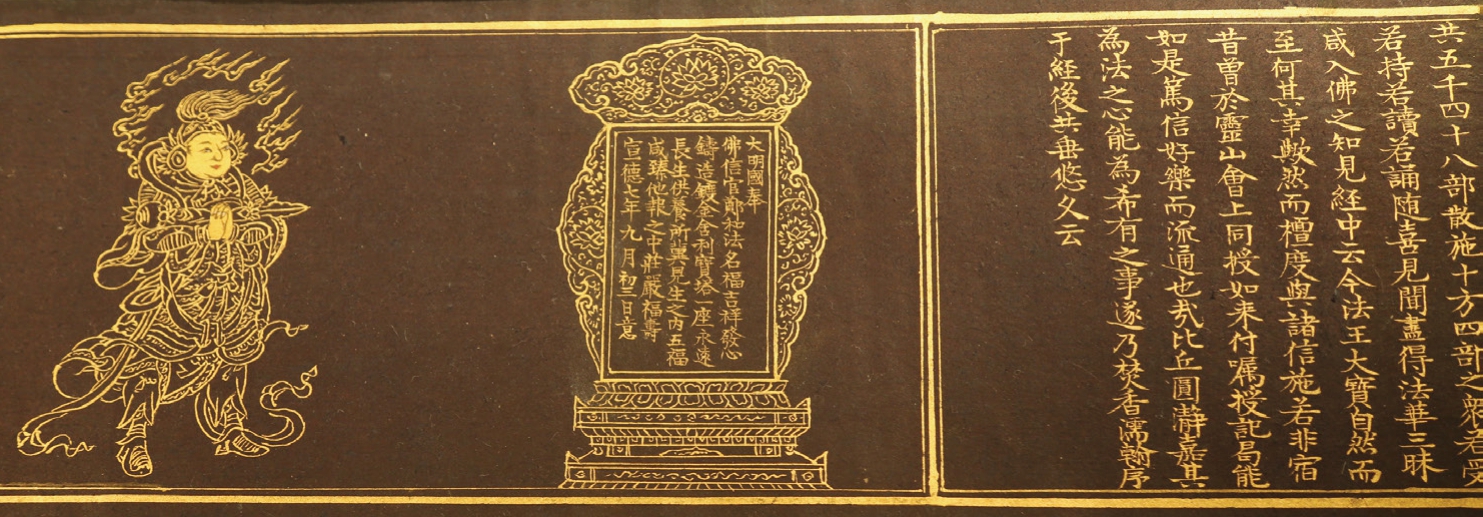 共五千四十八部散施十方四部之衆若受
若持若讀若誦随喜見聞盡得法華三昧
咸入佛之知見經中云今法王大寶自然而
至何其幸歟然而檀度與諸信施若非宿
昔曾於靈山會上同授如来付嘱授記曷能
如是篤信好樂而流通也㢤比丘圓瀞嘉其
為法之心能為希有之事遂乃焚香濡翰序
于経後共垂悠久云
大明國奉
佛信官鄭和法名福吉祥發心
鑄造鍍金舎利寳塔一座永遠
長生供養所兾見生之内五福
咸臻他報之中莊嚴福壽
宣德七年九月初三日意